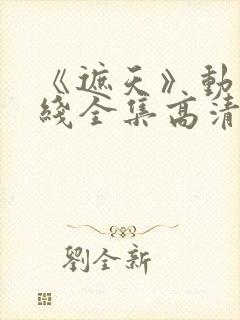 《遮天》動
綫全集高清
劉全新